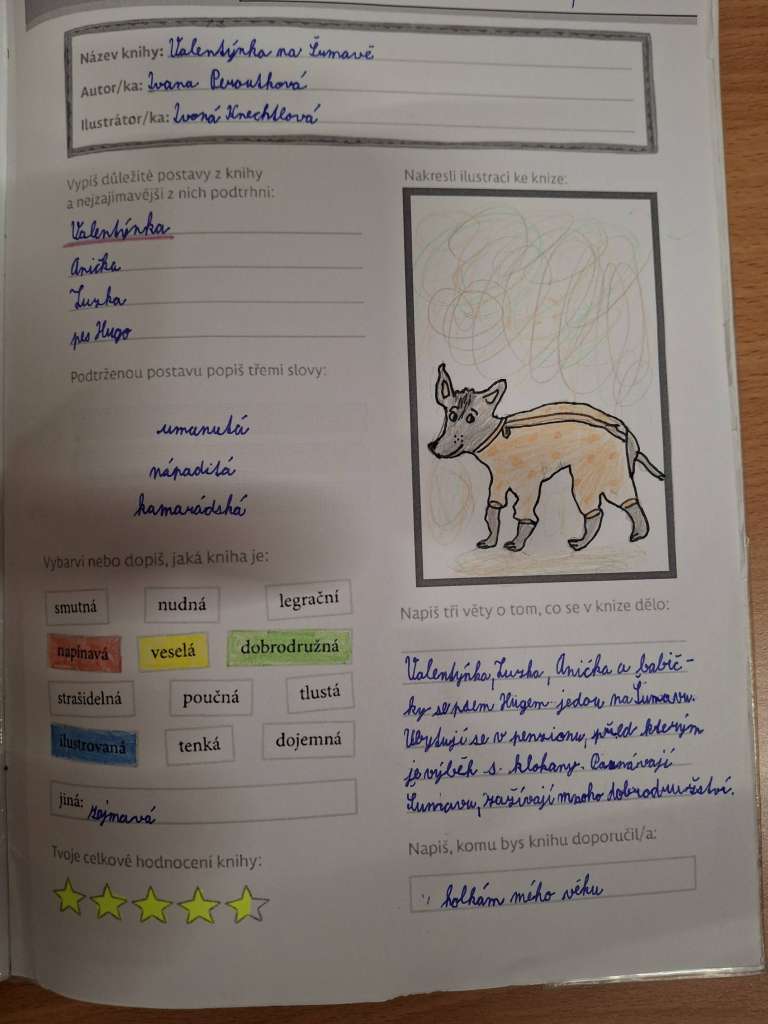 Název knihy: Valentýnka na Šumavě
Autor/ka: Ivana Peroutková
Ilustrátor/ka: Ivona Knechtlová
Vypiš důležité postavy z knihy
a nejzajímavější z nich podtrhni:
Valentýnka
Anička
Zuzka
pes Hugo
Podtrženou postavu popiš třemi slovy:
umanutá
nápaditá
kamarádská
Vybarvi nebo dopiš, jaká kniha je:
smutná nudná legrační
napínavá veselá dobrodružná
strašidelná poučná tlustá
ilustrovaná tenká dojemná
jiná: zajmavá
Tvoje celkové hodnocení knihy:
Nakresli ilustraci ke knize:
Napiš tři věty o tom, co se v knize dělo:
Valentýnka, Zuzka, Anička a babič-
ky se psem Hugem jedou na Šumavu.
Ubytují se v penzionu, před kterým
je výběh s klokany. Poznávají
Šumavu, zažívají mnoho dobrodružství.
Napiš, komu bys knihu doporučil/a:
holkám mého věku